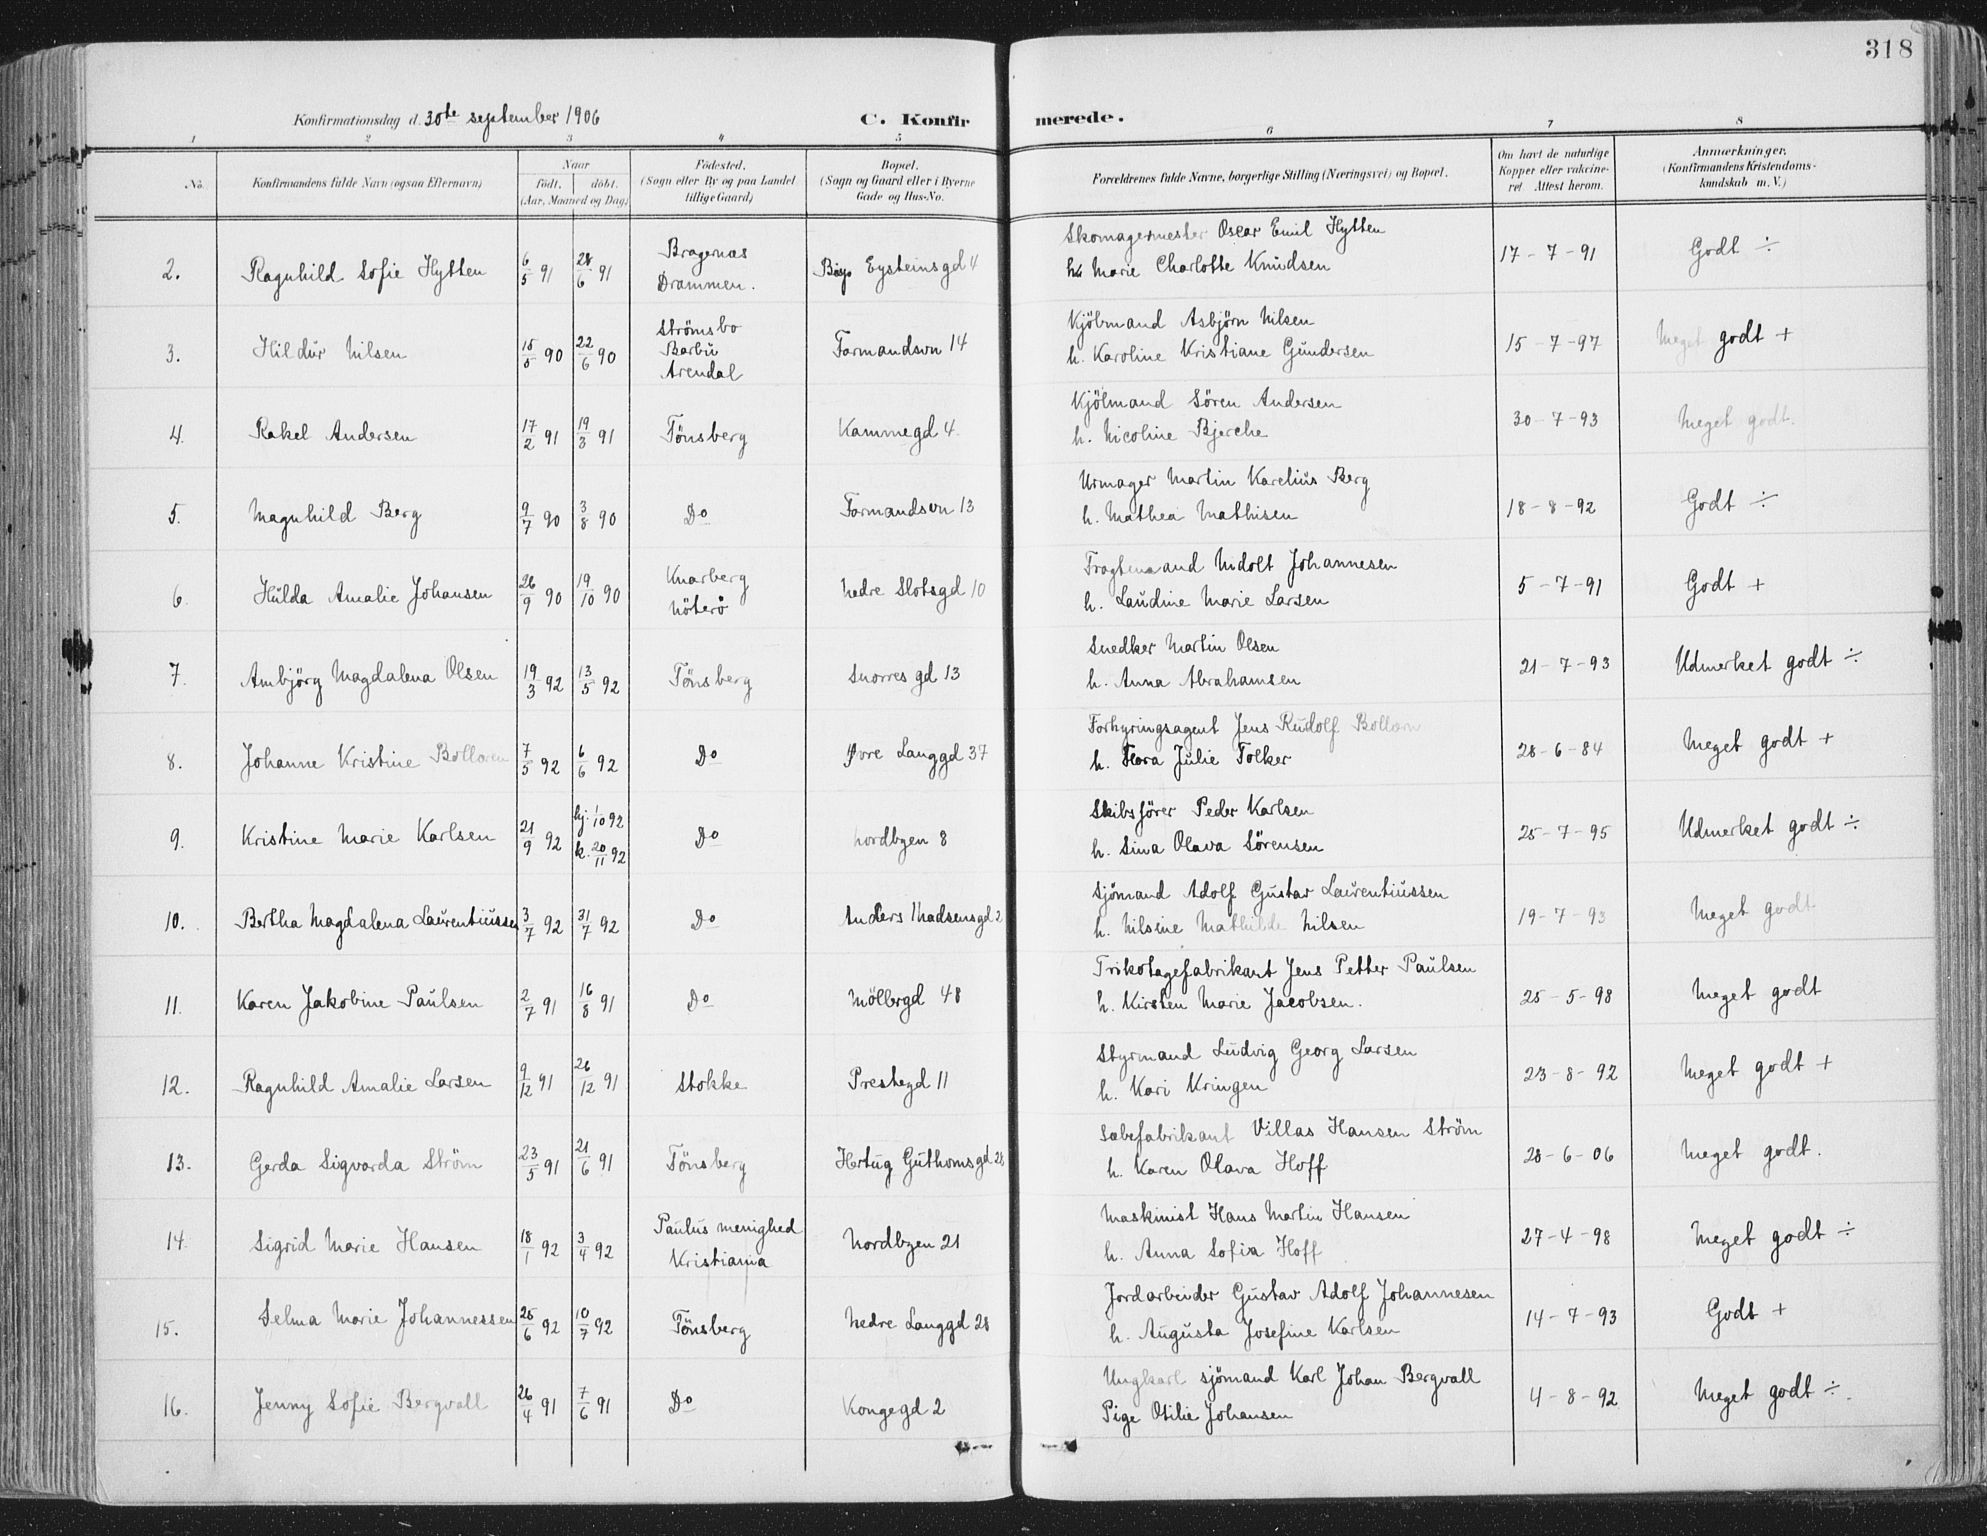 318
Konfirmationsdag d. 30de september 1906
C. Konfirmerede.
1 2 3 4 5 6 7 8
No.
Konfirmandens fulde Navn (ogsaa Efternavn)
Naar
födt. döbt.
(Aar, Maaned og Dag)
Födested.
(Sogn eller By og paa Landet
tillige Gaard)
Bopæl.
(Sogn og Gaard eller i Byerne
Gade og Hus-No.
Forældrenes fulde Navne, borgerlige Stilling (Næringsvei) og Bopæl.
Om havt de naturlige
Kopper eller vakcine-
ret. Attest herom.
Anmærkninger.
(Konfirmandens Kristendoms-
kundskab m. V.)
2. Ragnhild Sofie Hytten 6/5 91 28/6 91 Bragernæs Drammen. Eysteinsgd 4 Skomagermester Oscar Emil Hytten
h. Marie Charlotte Knudsen 17-7-91 Godt ÷
3. Hildur Nilsen 15/5 90 22/6 90 Strömsbo Barbu Arendal Formandsvn 14 Kjöbmand Asbjörn Nilsen
h. Karoline Kristiane Gundersen 15-7-97 Meget godt +
4. Rakel Andersen 17/2 91 19/3 91 Tönsberg Kammegd 4. Kjölmand Sören Andersen
h. Nicoline Bjerche 30-7-93 Meget godt.
5. Magnhild Berg 9/7 90 3/8 90 Do Formandsvn 13 Urmager Martin Karelius Berg
h. Mathea Mathisen 18-8-92 Godt ÷
6. Hulda Amalie Johansen 26/9 90 19/10 90 Knarberg Nöterö Nedre Slotsgd 10 Fragtemand Nidolt Johannesen
h. Laudine Marie Larsen 5-7-91 Godt +
7. Ambjörg Magdalena Olsen 19/3 92 13/5 92 Tönsberg Snorres gd 13 Snedker Martin Olsen
h. Anna Abrahamsen 21-7-93 Udmerket godt ÷
8. Johanne Kristine Bolloren 7/5 92 6/6 92 Do Øvre Langgd 37 Forhyringsagent Jens Rudolf
h. Flora Julie Folker 28-6-84 Meget godt +
9. Kristine Marie Karlsen 21/9 92 hj. 1/10 92 k. 20/11 92 Do Nordbyen 8 Skibsförer Peder Karlsen
h. Sina Olava Sörensen 25-7-95 Udmerket godt ÷
10. Bertha Magdalena Laurentiussen 3/7 92 31/7 92 Do Anders Madsensgd 2 Sjömand Adolf Gustav Laurentiussen
h. Nilsine Mathilde Nilsen 19-7-93 Meget godt
11. Karen Jakobine Paulsen 2/7 91 16/8 91 Do Möllergd 48 Trikotagefabrikant Jens Petter Paulsen
h. Kirsten Marie Jacobsen. 25-5-98 Meget godt
12. Ragnhild Amalie Larsen 9/12 91 26/12 91 Stokke Prestegd 11 Styrmand Ludvig Georg Larsen
h. Kari Kringen 23-8-92 Meget godt +
13. Gerda Sigvarda Ström 23/5 91 21/6 91 Tönsberg Hertug Guthomsgd 28 Sæbefabrikant Villas Hansen Ström
h. Karen Olava Hoff 28-6-06 Meget godt.
14. Sigrid Marie Hansen 18/1 92 3/4 92 Paulus menighed Kristiania Nordbyen 21 Maskinist Hans Martin Hansen
h. Anna Sofia Hoff 27-4-98 Meget godt ÷
15. Selma Marie Johannessen 25/6 92 10/7 92 Tönsberg Nedre Langgd 28 Jordarbeider Gustav Adolf Johannesen
h. Augusta Josefine Karlsen 14-7-93 Godt +
16. Jenny Sofie Bergvall 26/4 91 7/6 91 Do Kongegd 2 Ungkarl sjömand Karl Johan Bergvall
Pige Otilie Johansen 4-8-92 Meget godt ÷